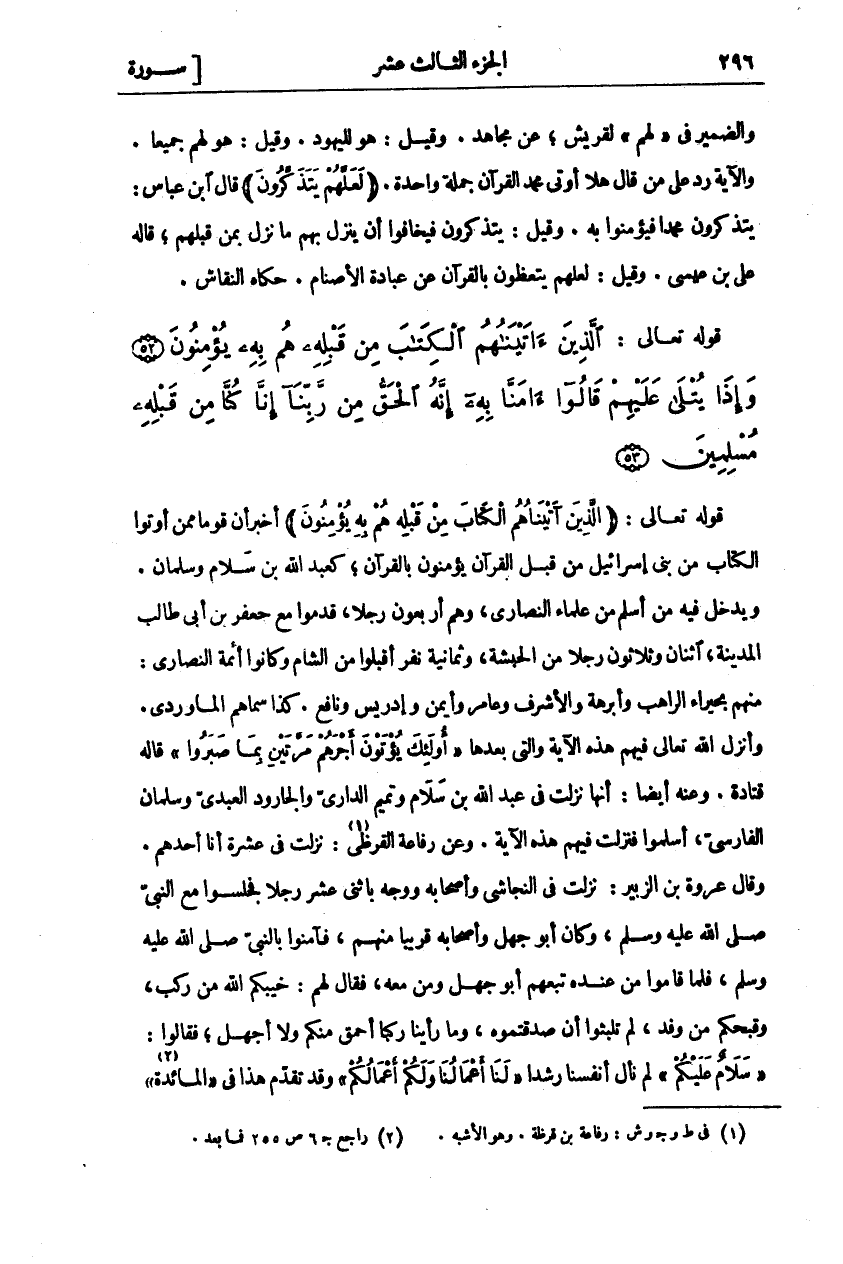 ٢٩٦ الجزء الثالث عشر [ سورة
والضمير فى « لهم » لقريش ؛ عن مجاهد . وقيل : هو لليهود . وقيل : هو لهم جميعا .
والآية رد على من قال هلا أوتى محمد القرآن جملة واحدة . ﴿ لَعَلَّهُمْ يَتَذَكَّرُونَ ﴾ قال ٱبن عباس :
يتذكرون محمدا فيؤمنوا به . وقيل : يتذكرون فيخافوا أن ينزل بهم ما نزل بمن قبلهم ؛ قاله
على بن عيسى . وقيل : لعلهم يتعظون بالقرآن عن عبادة الأصنام . حكاه النقاش .
قوله تعالى : ٱلَّذِينَ ءَاتَيْنَٰهُمُ ٱلْكِتَٰبَ مِن قَبْلِهِۦ هُم بِهِۦ يُؤْمِنُونَ ٥٢
وَإِذَا يُتْلَىٰ عَلَيْهِمْ قَالُوٓا۟ ءَامَنَّا بِهِۦٓ إِنَّهُ ٱلْحَقُّ مِن رَّبِّنَآ إِنَّا كُنَّا مِن قَبْلِهِۦ
مُسْلِمِينَ ٥٣
قوله تعالى : ﴿ الَّذِينَ آتَيْنَاهُمُ الْكِتَابَ مِنْ قَبْلِهِ هُمْ بِهِ يُؤْمِنُونَ ﴾ أخبر أن قوما ممن أوتوا
الكتاب من بنى إسرائيل من قبل القرآن يؤمنون بالقرآن ؛ كعبد الله بن سَلام وسلمان .
ويدخل فيه من أسلم من علماء النصارى ، وهم أربعون رجلا ، قدموا مع جعفر بن أبى طالب
المدينة ، ٱثنان وثلاثون رجلا من الحبشة ، وثمانية نفر أقبلوا من الشام وكانوا أئمة النصارى :
منهم بحيراء الراهب وأبرهة والأشرف وعامر وأيمن وإدريس ونافع . كذا سماهم الماوردى .
وأنزل الله تعالى فيهم هذه الآية والتى بعدها « أُولَئِكَ يُؤْتَوْنَ أَجْرَهُمْ مَرَّتَيْنِ بِمَا صَبَرُوا » قاله
قتادة . وعنه أيضا : أنها نزلت فى عبد الله بن سَلَام وتميم الدارىّ والجارود العبدىّ وسلمان
الفارسىّ ، أسلموا فنزلت فيهم هذه الآية . وعن رفاعة القرظى (١) : نزلت فى عشرة أنا أحدهم .
وقال عروة بن الزبير : نزلت فى النجاشى وأصحابه ووجه باثنى عشر رجلا فجلسوا مع النبىّ
صلى الله عليه وسلم ، وكان أبو جهل وأصحابه قريبا منهم ، فآمنوا بالنبىّ صلى الله عليه
وسلم ، فلما قاموا من عنده تبعهم أبو جهل ومن معه ، فقال لهم : خيبكم الله من ركب ،
وقبحكم من وفد ، لم تلبثوا أن صدقتموه ، وما رأينا ركبا أحمق منكم ولا أجهل ؛ فقالوا :
« سَلَامٌ عَلَيْكُمْ » لم نأل أنفسنا رشدا « لَنَا أَعْمَالُنَا وَلَكُمْ أَعْمَالُكُمْ » وقد تقدّم هذا فى «المائدة» (٢)
(١) فى ط و جـ و ش : رفاعة بن قرظة . وهو الأشبه . (٢) راجع جـ ٦ ص ٢٥٥ فما بعد .